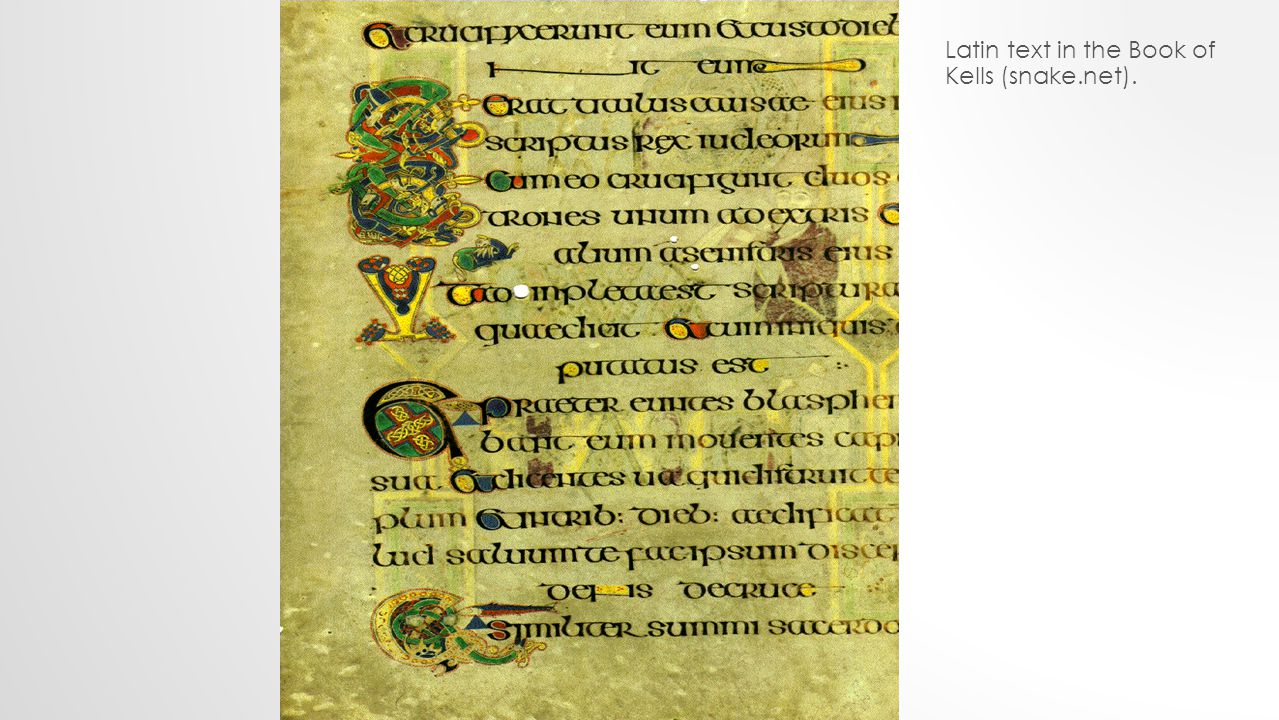 & crucifixerunt eum & custodieb
it eum
Erat titulus causae eius
scriptus rex iudeorum
Cum eo crucifigunt duos
trones unum adextris
alium asenistris eius
Et
inpletaest scriptura
quaedicit & cuminiquis
putatus est
Et praeter euntes blasphe
bant eum moventes capi
sua & dicentes ua quidistruit te
plum & intrib: dieb: aedificat
lud saluumte facipsum disce
de cruce
Similiter summi sacerdo
Latin text in the Book of
Kells (snake.net).